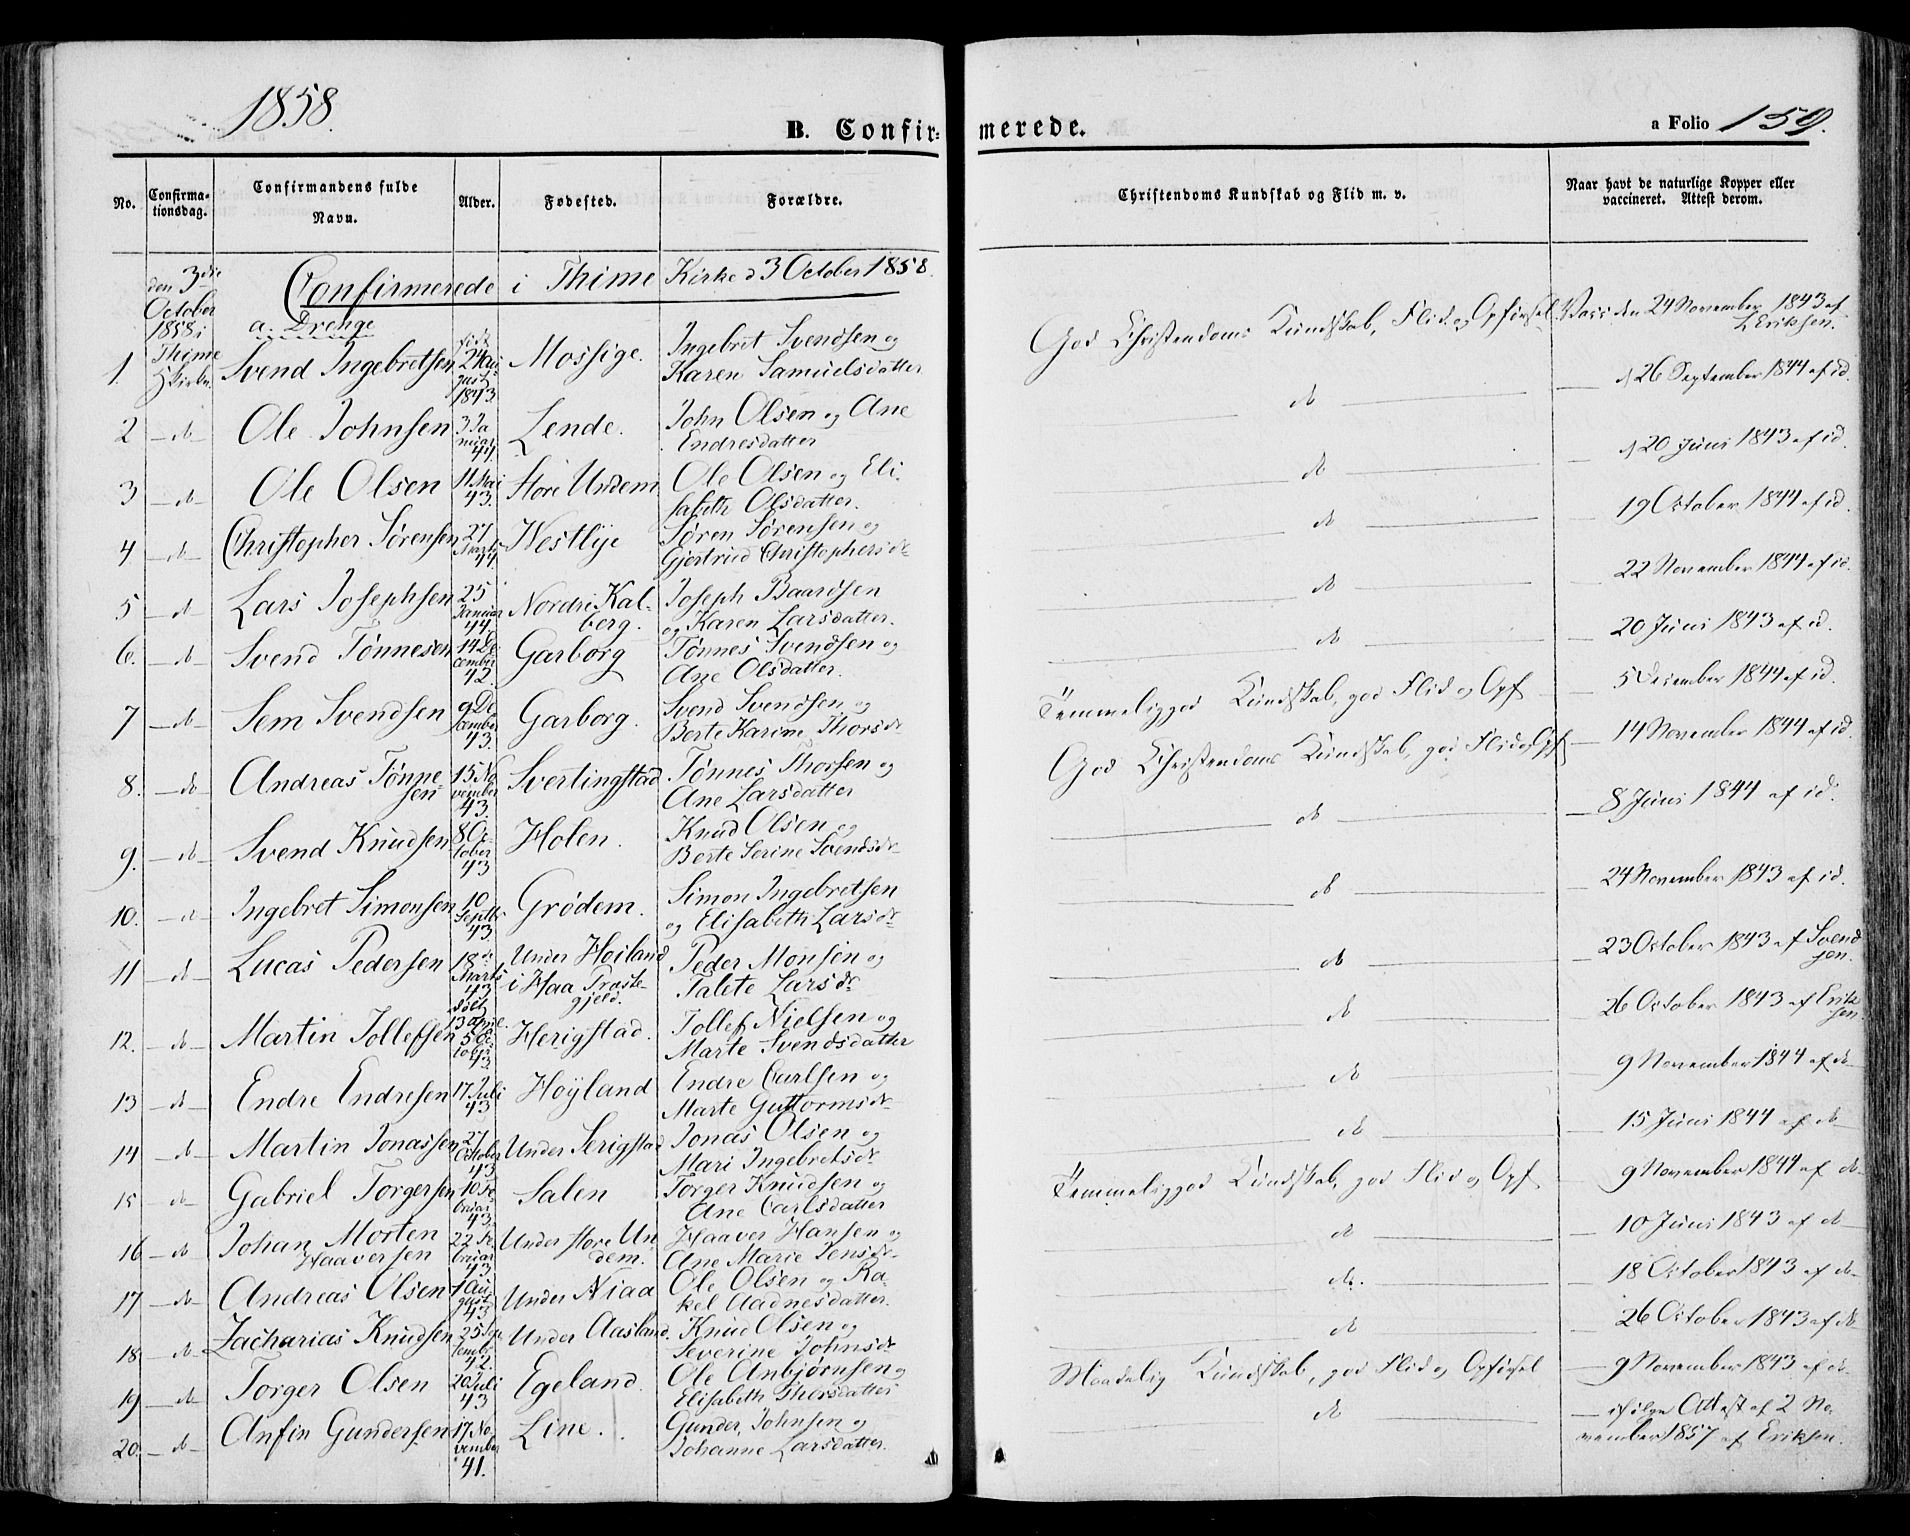 1858.
B. Confirmerede.
a Folio 159.
No. Confirmationsdag. Confirmandens fulde Navn. Alder. Fødested. Forældre. Christendoms Kundskab og Flid m. v. Naar havt de naturlige Kopper eller vaccineret. Attest derom.
den 3die October 1858 i Thime Kirke
Confirmerede i Thime Kirke d 3 October 1858.
a. Drenge
1. Svend Ingebretsen født 24 August 1843. Mossige. Ingebret Svendsen og Karen Samuelsdatter God Christendoms Kundskab, Flid og Opførsel Vacc. den 24 November 1843 af Eriksen.
2 – do – Ole Johnsen 3 Januar 44. Lende. John Olsen og Ane Endresdatter – do – – d 26 September 1844 af id.
3 – do – Ole Olsen 11 Mai 43. Store Undem Ole Olsen og Elisabeth Olsdatter. – do – – d 20 Juni 1843 af id.
4 – do – Christopher Sørensen 27 Marts 44. Westlye Søren Sørensen og Gjertrud Christophersdr – do – – 19 October 1844 af id.
5 – do – Lars Josephsen 25 Januar 44. Nordre Kalberg. Joseph Baardsen og Karen Larsdatter. – do – – 22 November 1844 af id.
6. – do – Svend Tønnesen 14 December 42. Garborg Tønnes Svendsen og Ane Olsdatter. – do – – 20 Juni 1843 af id.
7 – do – Sem Svendsen 9 December 43. Garborg. Svend Svendsen og Berte Karine Thorsdr Temmelig god Kundskab, god Flid og Opf – 5 December 1844 af id.
8. – do – Andreas Tønnesen 15 November 43. Svertingstad Tønnes Thorsen og Ane Larsdatter God Christendoms Kundskab, god Flid og Opf – 14 November 1844 af id.
9. – do – Svend Knudsen 8 October 43 Holen. Knud Olsen og Berte Serine Svendsdr – do – – 8 Juni 1844 af id.
10. – do – Ingebret Simonsen 10 Septbr 43. Grødem. Simon Ingebretsen og Elisabeth Larsdr – do – 24 November 1843 af id.
11 – do – Lucas Pedersen 18de Marts 43 døbt 13 April. Under Høiland i Haa Præstegjeld. Peder Monsen og Talete Larsdr – do – – 23 October 1843 af Svendsen.
12. – do – Martin Tollefsen 5 October 43 Herigstad. Tollef Nielsen og Marte Svendsdatter – do – – 26 October 1843 af Eriksen.
13 – do – Endre Endresen 17 Juli 43 Høyland Endre Carlsen og Marte Guttormsdr – do – – 9 November 1844 af do –
14 – do – Martin Jonassen 27 October 43 Under Serigstad Jonas Olsen og Mari Ingebretsdr – do – – 15 Juni 1844 af do –
15 – do – Gabriel Torgersen 10 Februar 43. Salen Torger Knudsen og Ane Carlsdatter Temmelig god Kundskab, god Flid og Opf – 9 November 1844 af do –
16 – do – Johan Morten Haaversen 22 Februar 43 Under Store Undem. Haaver Hansen og Ane Marie Jensdr – do – – 10 Juni 1843 af do –
17 – do – Andreas Olsen 1 August 43 Under Niaa Ole Olsen og Rakel Aadnesdatter. – do. – 18 October 1843 af do –
18. – do – Zacharias Knudsen 25 September 42. Under Aasland. Knud Olsen og Severine Johnsdr – do – 26 October 1843 af do –
19 – do – Torger Olsen 20 Juli 43 Egeland. Ole Anbjørnsen og Elisabeth Thorsdatter Maadelig Kundskab, god Flid og Opførsel – 9 November 1843 af do –
20. – do – Anfin Gundersen 17 November 41. Line. Gunder Johnsen og Johanne Larsdatter. – do – – ifølge Attest af 2 November 1857 af Eriksen.